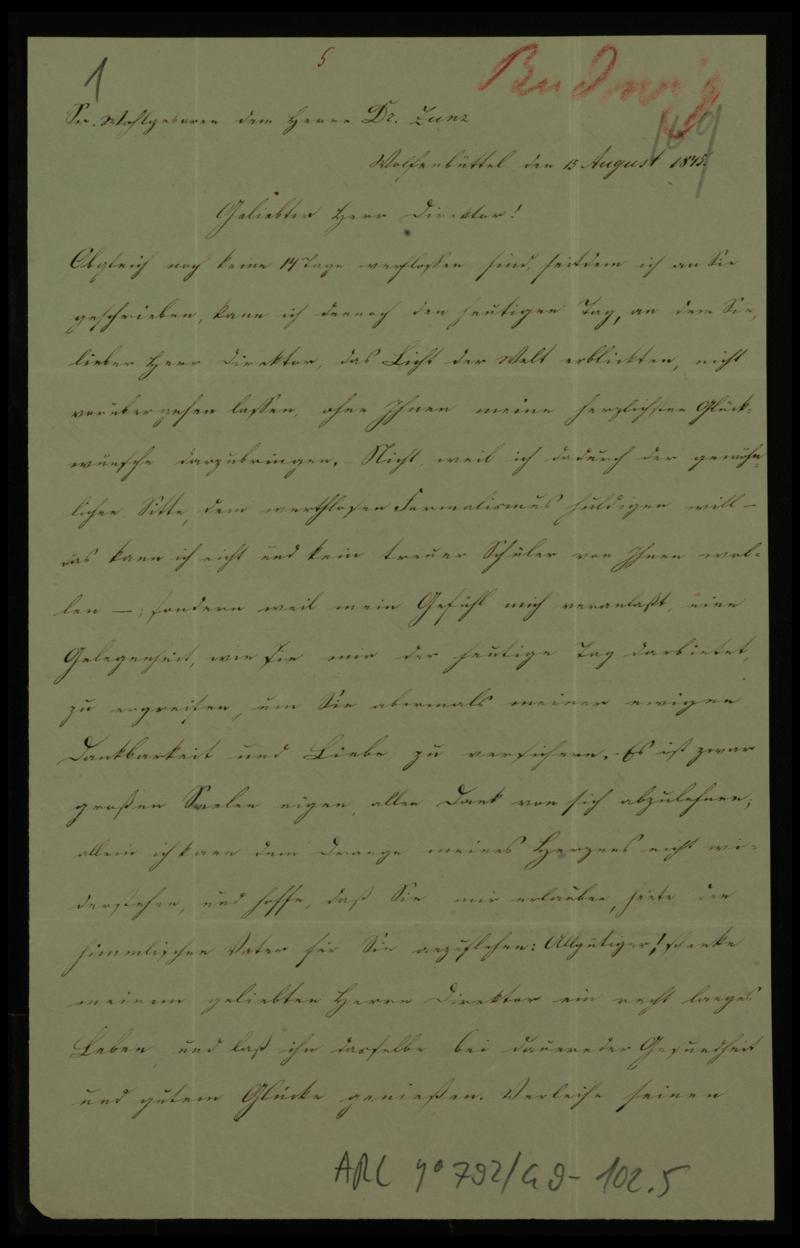 1
5
Budwig
109
Sr. Wohlgeboren dem Herrn Dr. Zunz
Wolfenbüttel den 15 August 1845.
Geliebter Herr Direktor!
Obgleich noch keine 14 Tage verflossen sind, seitdem ich an Sie
geschrieben, kann ich dennoch den heutigen Tag, an dem Sie,
lieber Herr Direktor, das Licht der Welt erblickten, nicht
vorübergehen lassen, ohne Ihnen meine herzlichsten Glück-
wünsche darzubringen. – Nicht, weil ich dadurch der gewöhn-
lichen Sitte, dem werthlosen Formalismus huldigen will –
das kann ich nicht und kein treuer Schüler von Ihnen wol-
len –; sondern weil mein Gefühl mich veranlaßt, eine
Gelegenheit, wie sie mir der heutige Tag darbietet,
zu ergreifen, um Sie abermals meiner ewigen
Dankbarkeit und Liebe zu versichern. – Es ist zwar
großen Seelen eigen, allen Dank von sich abzulehnen;
allein ich kann dem Drange meines Herzens nicht wi-
derstehen, und hoffe, daß Sie mir erlauben, heute den
himmlischen Vater für Sie anzuflehen: Allgütiger! schenke
meinem geliebten Herrn Direktor ein recht langes
Leben und laß ihn dasselbe bei dauernder Gesundheit
und gutem Glücke genießen. Verleihe seinen
ARC 4° 792/G9-102.5